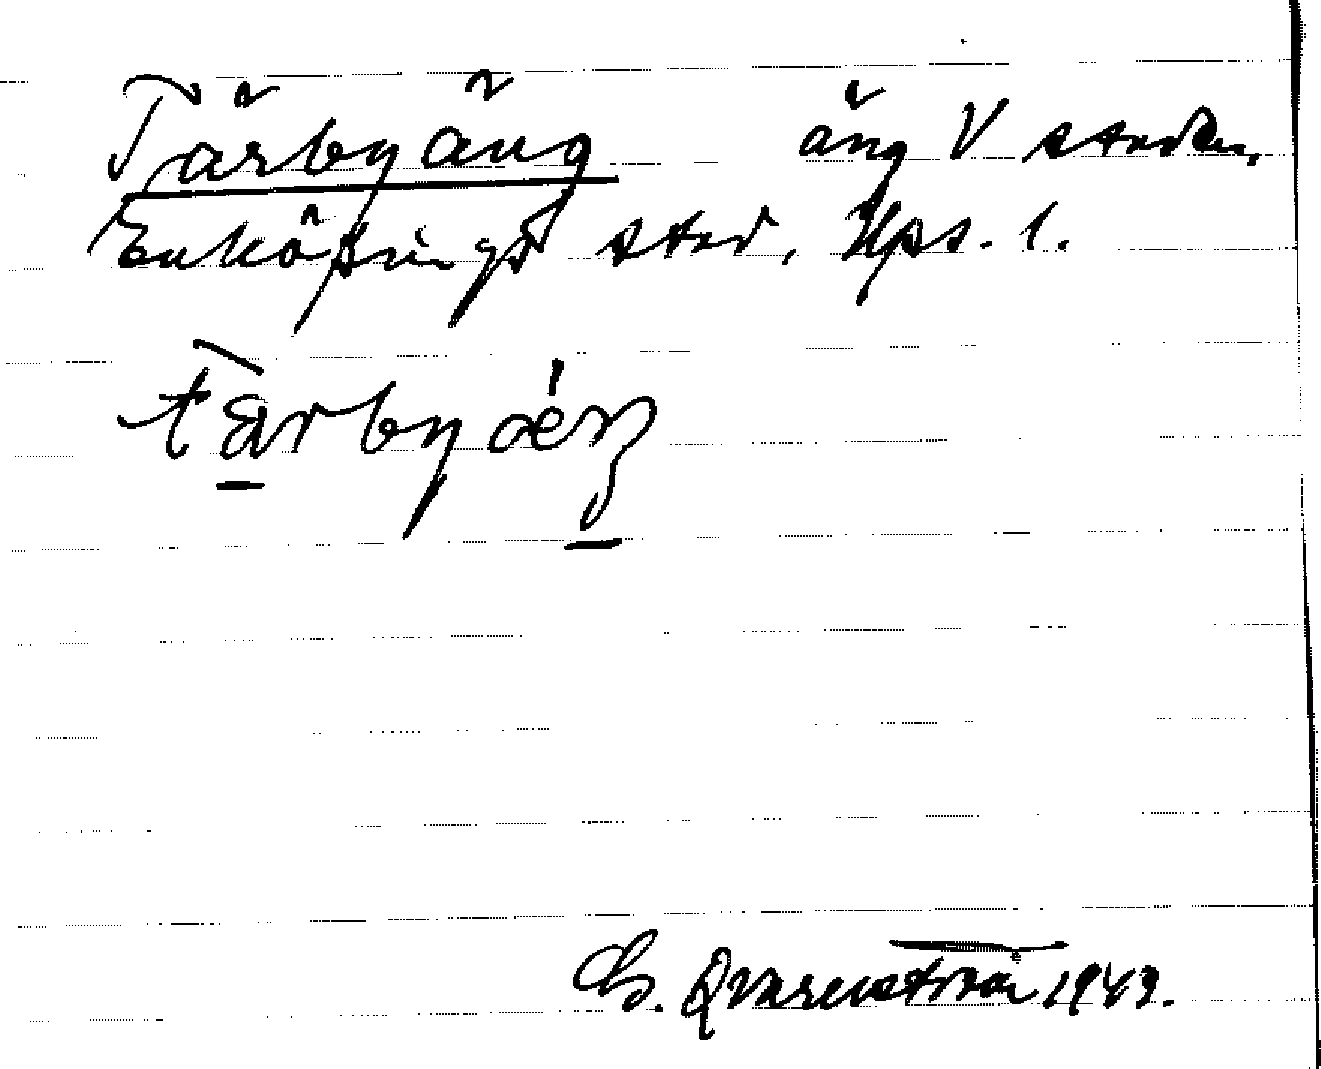 Tärbyäng äng V staden,
Enköpings stad, Ups. l.
tæ̀rbyǽŋ
G. Qvarnström 1949.